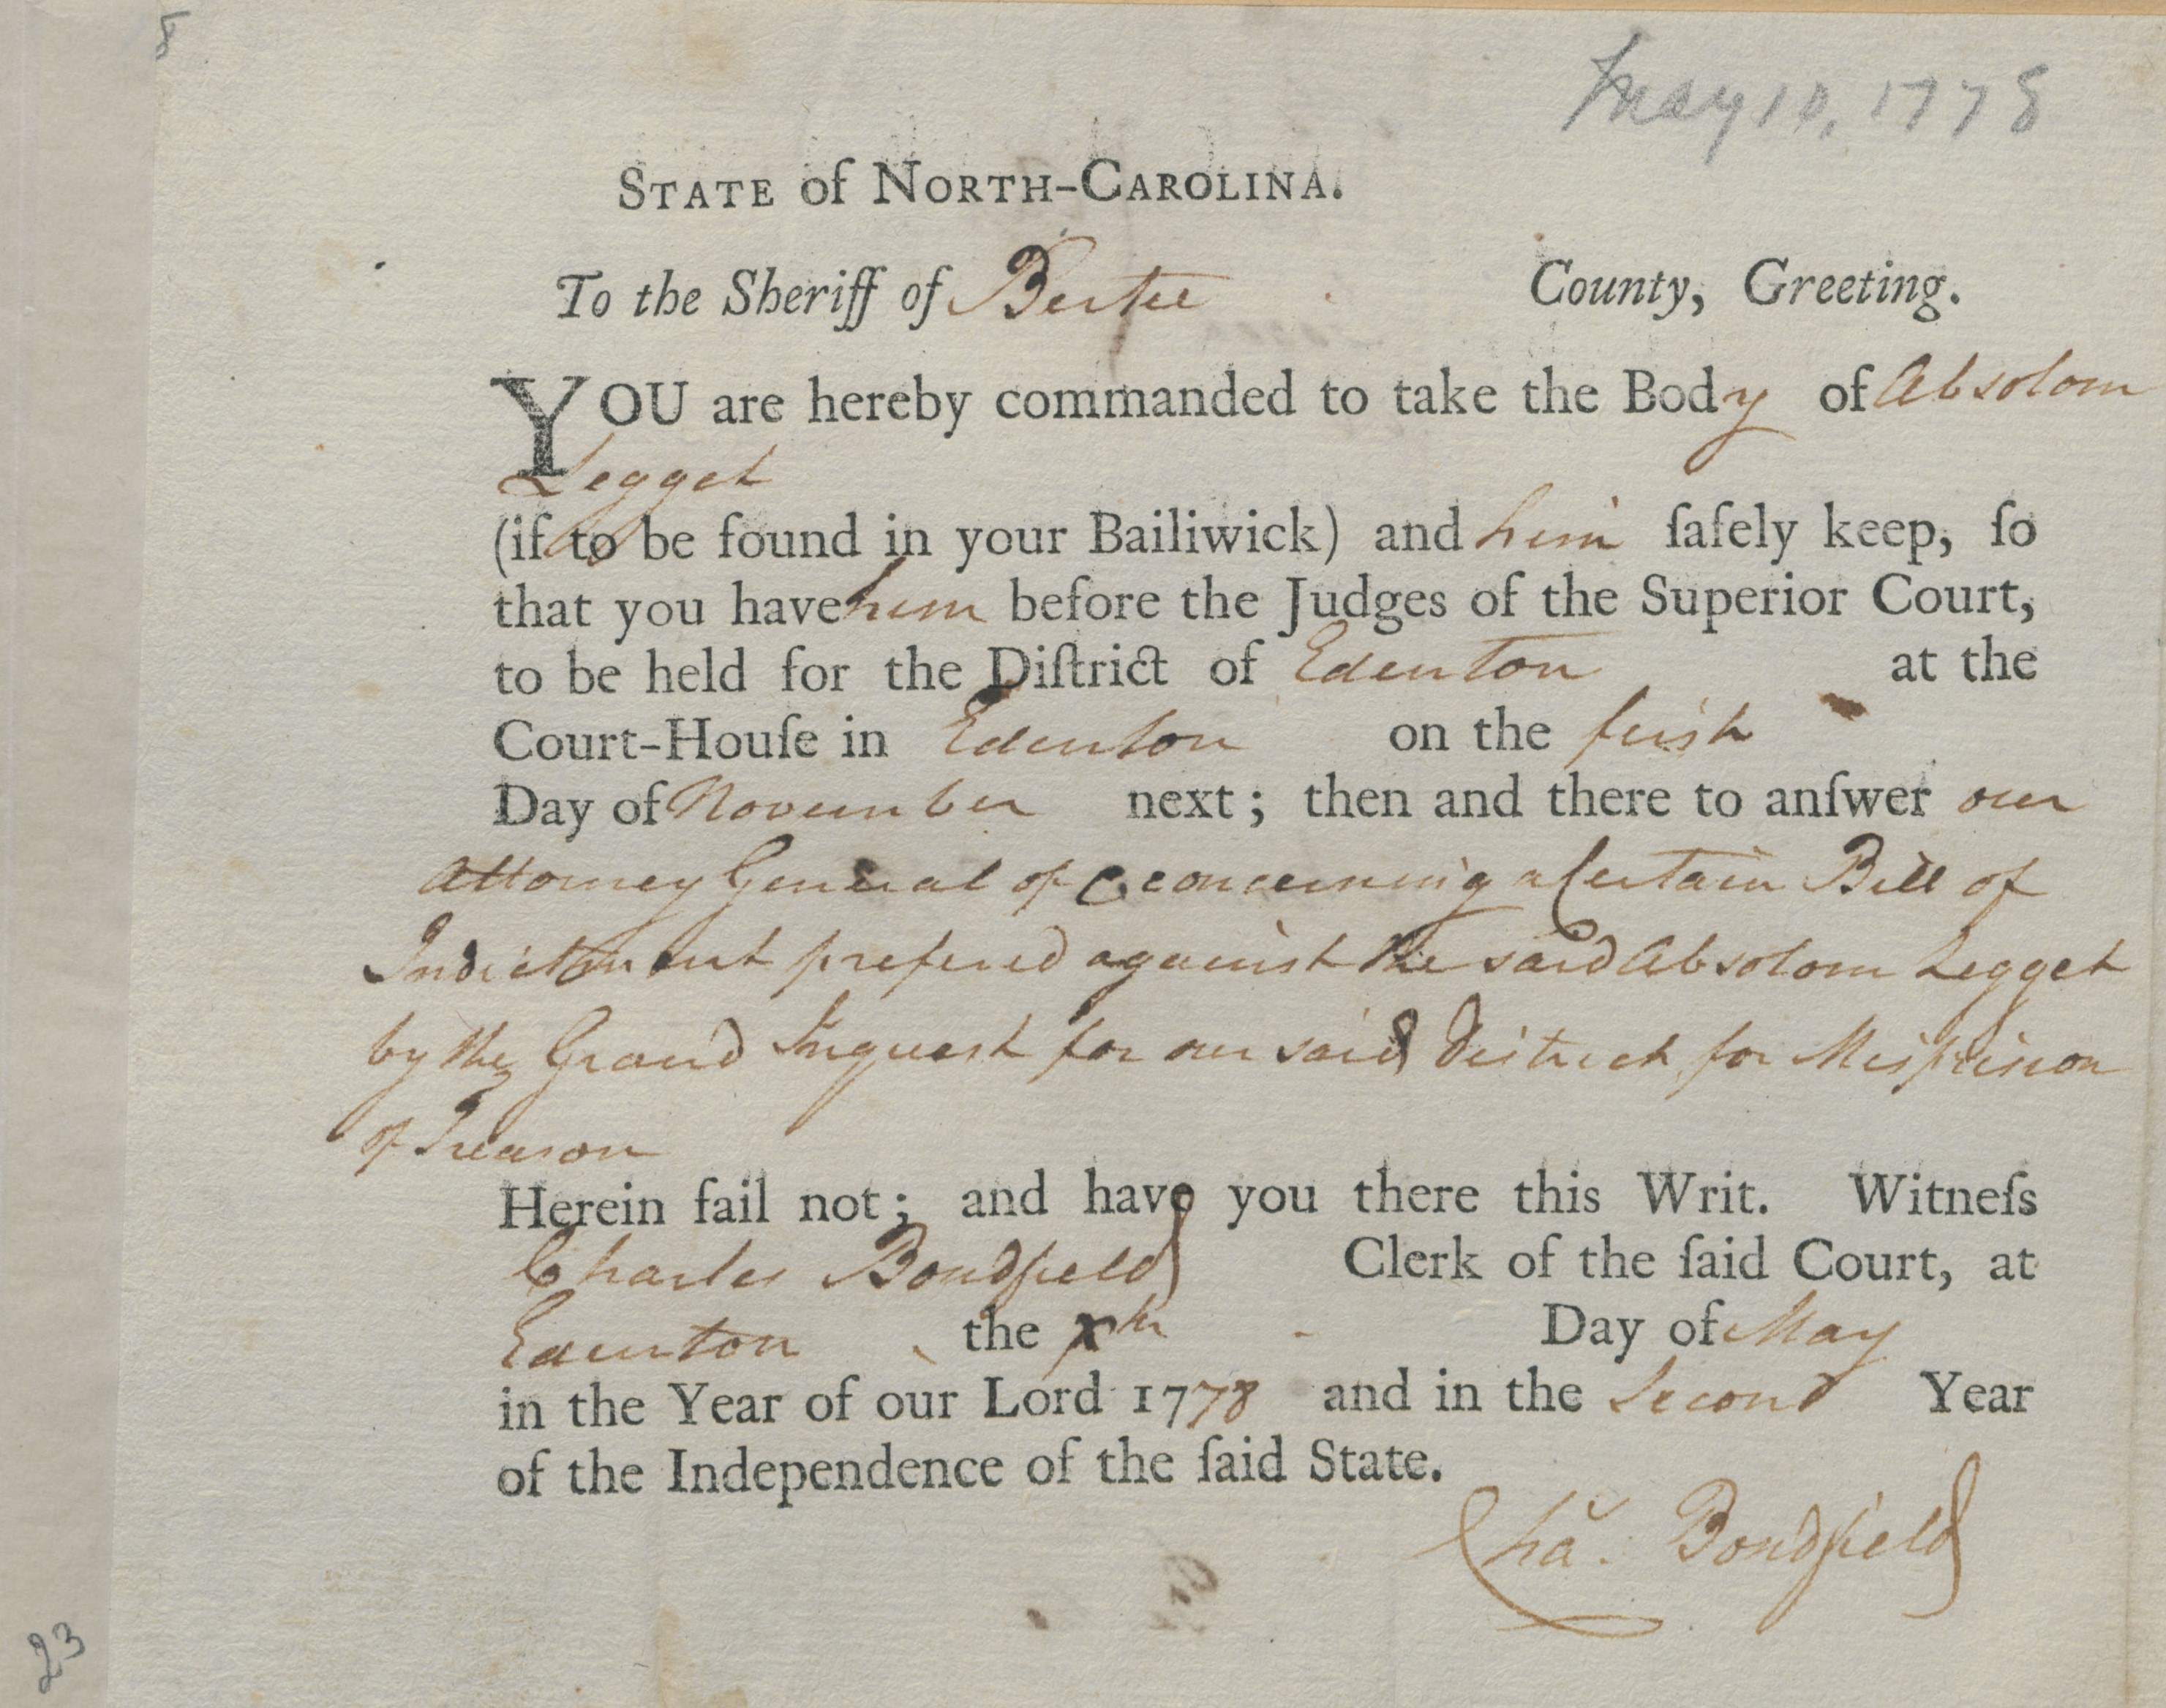 8
May 10, 1778
STATE of NORTH-CAROLINA.
To the Sheriff of Bertie County, Greeting.
YOU are hereby commanded to take the Body of Absolom
Legget
(if to be found in your Bailiwick) and him ſafely keep, ſo
that you have him before the Judges of the Superior Court,
to be held for the Diſtrict of Edenton at the
Court-Houſe in Edenton on the first
Day of November next; then and there to anſwer our
Attorney General of & concerning a Certain Bill of
Indictment prefered against the said Absolom Legget
by the Grand Inquest for our said District for Misprision
of Treason
Herein fail not; and have you there this Writ. Witneſs
Charles Bondfield Clerk of the ſaid Court, at
Edenton the xth Day of May
in the Year of our Lord 1778 and in the Second Year
of the Independence of the ſaid State.
Cha. Bondfield
23